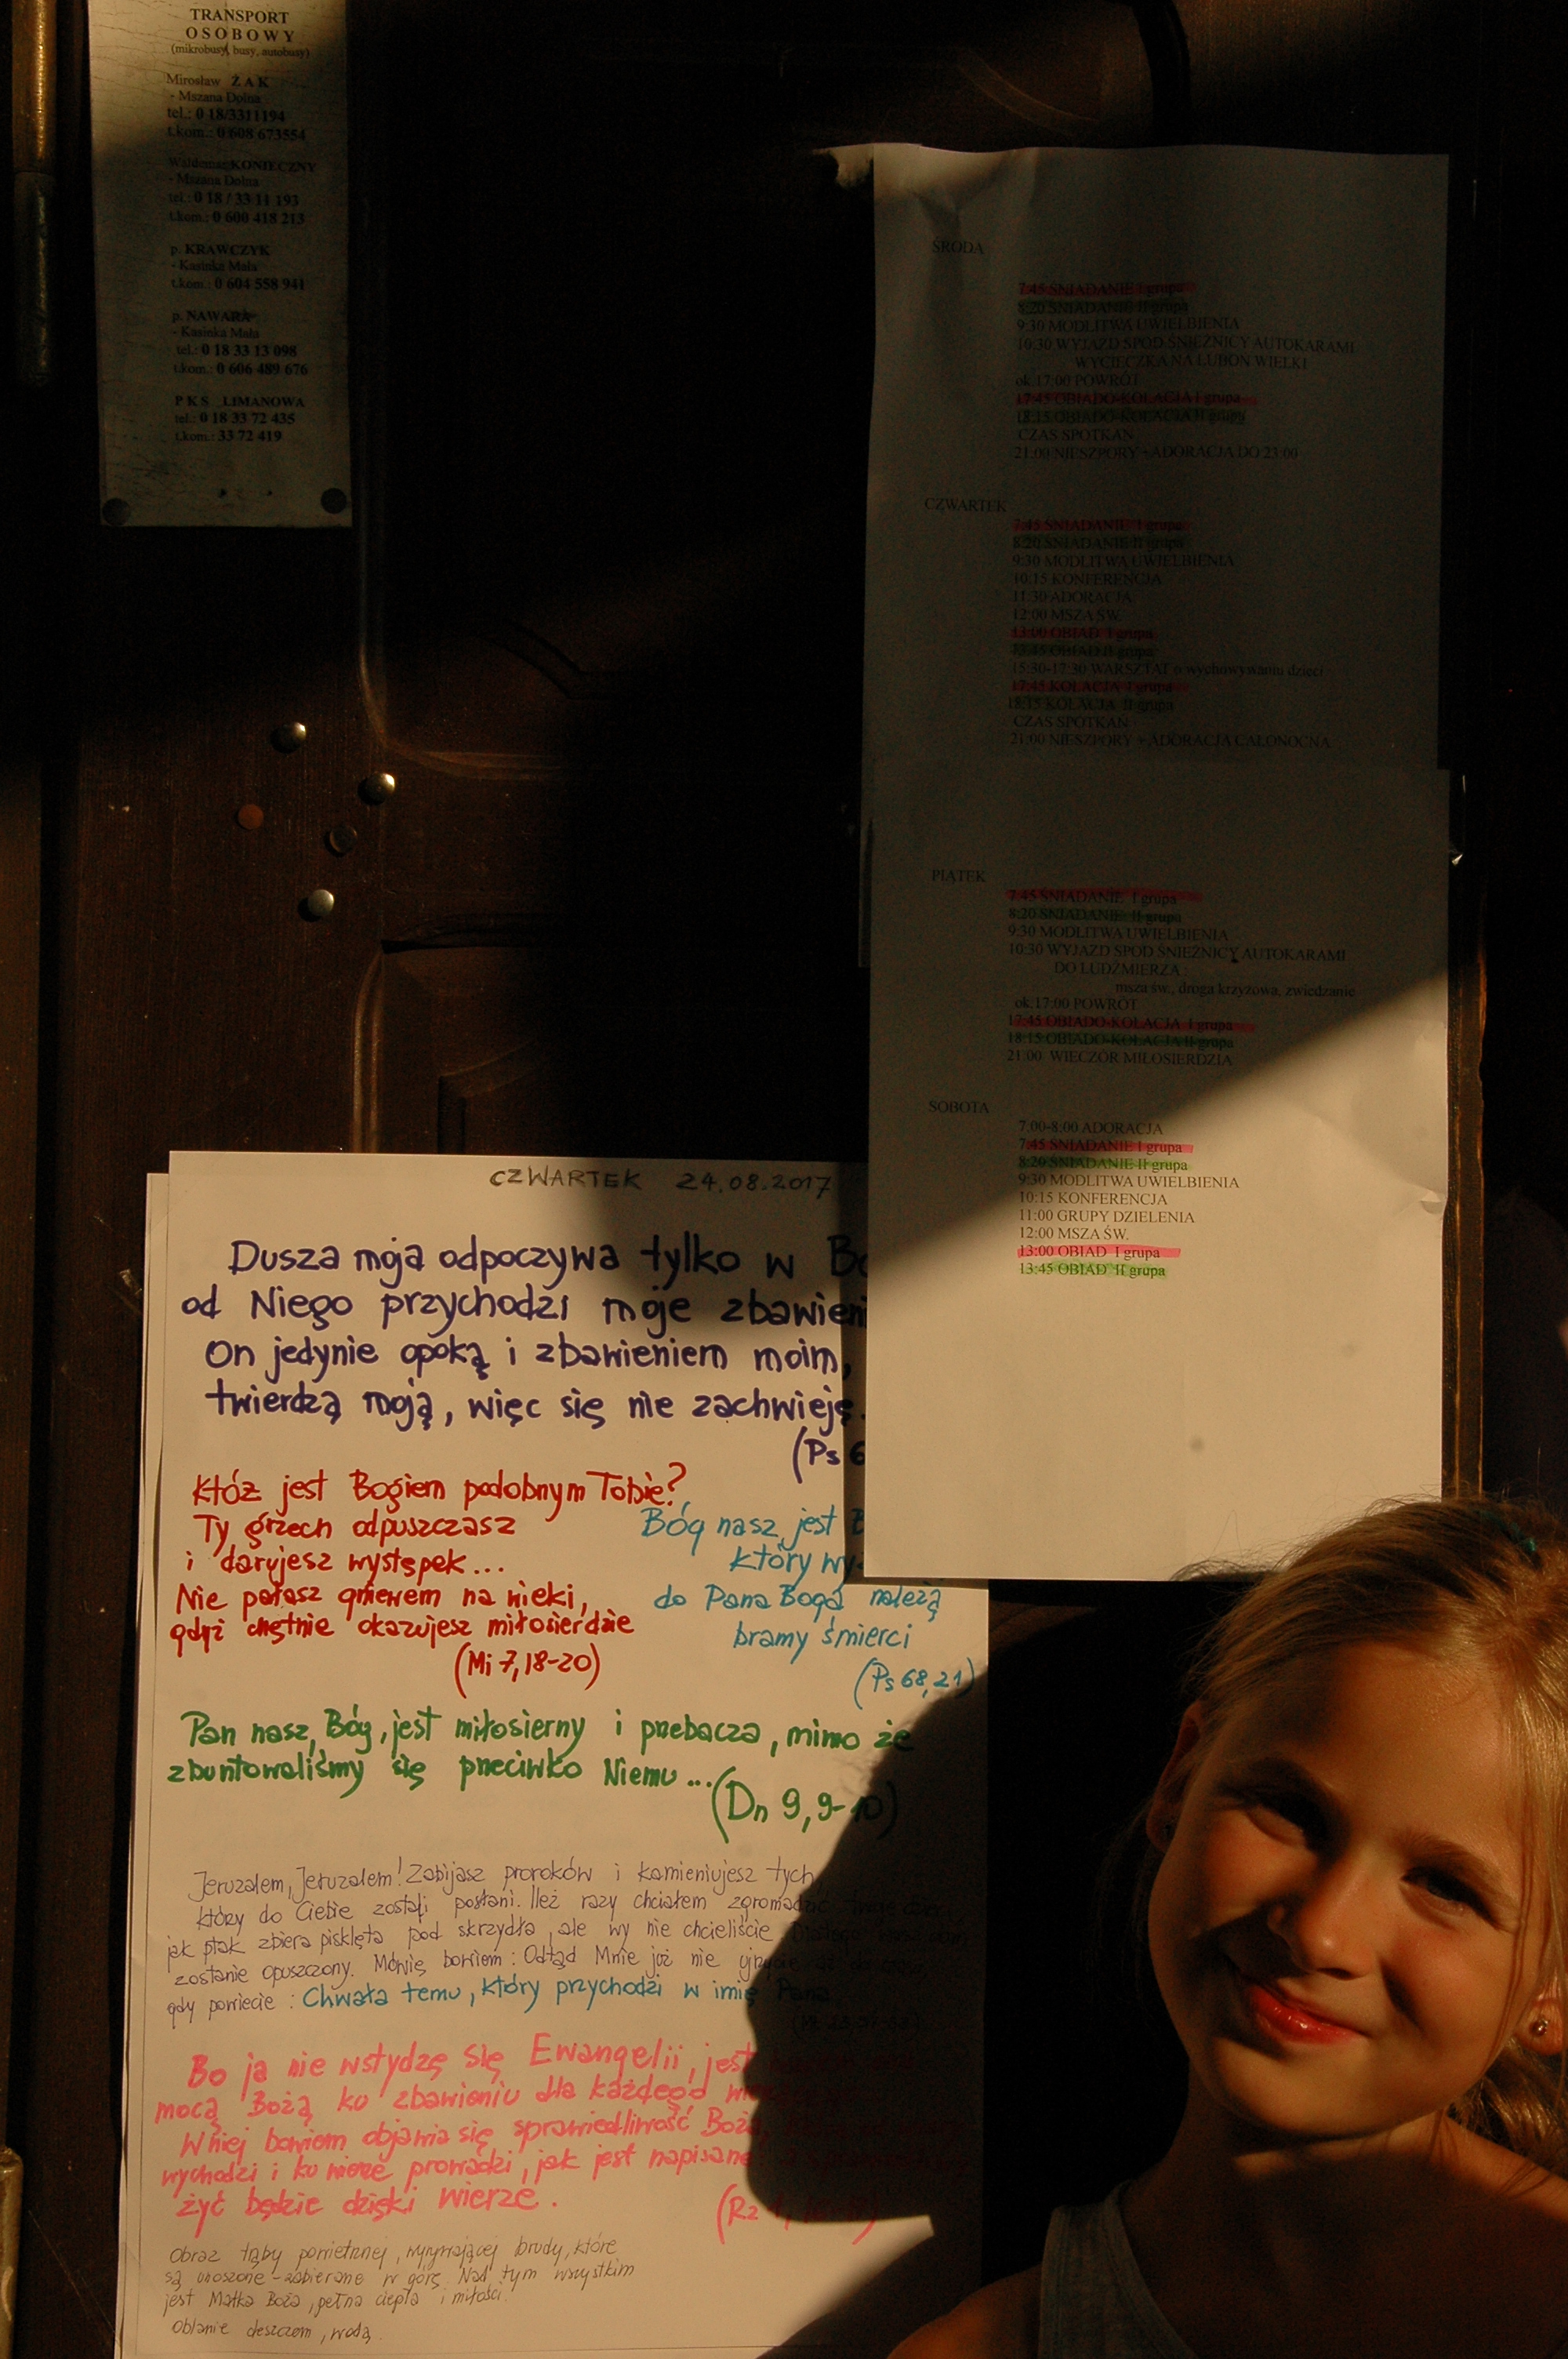 TRANSPORT
OSOBOWY
(mikrobusy, busy, autobusy)
Mirosław ŻAK
- Mszana Dolna
tel.: 0 18/3311194
t.kom.: 0 608 673554
Waldemar KONIECZNY
- Mszana Dolna
tel.: 0 18 / 33 11 193
t.kom.: 0 600 418 213
p. KRAWCZYK
- Kasinka Mała
t.kom.: 0 604 558 941
p. NAWARA
- Kasinka Mała
tel.: 0 18 33 13 098
t.kom.: 0 606 489 676
PKS LIMANOWA
tel.: 0 18 33 72 435
t.kom.: 33 72 419
ŚRODA
7:45 ŚNIADANIE I grupa
8:20 ŚNIADANIE II grupa
9:30 MODLITWA UWIELBIENIA
10:30 WYJAZD SPOD ŚNIEŻNICY AUTOKARAMI
WYCIECZKA NA LUBOŃ WIELKI
ok.17:00 POWRÓT
17:45 OBIADO-KOLACJA I grupa
18:15 OBIADO-KOLACJA II grupa
CZAS SPOTKAŃ
21:00 NIESZPORY + ADORACJA DO 23:00
CZWARTEK
7:45 ŚNIADANIE I grupa
8:20 ŚNIADANIE II grupa
9:30 MODLITWA UWIELBIENIA
10:15 KONFERENCJA
11:30 ADORACJA
12:00 MSZA ŚW.
13:00 OBIAD I grupa
13:45 OBIAD II grupa
15:30-17:30 WARSZTAT o wychowywaniu dzieci
17:45 KOLACJA I grupa
18:15 KOLACJA II grupa
CZAS SPOTKAŃ
21:00 NIESZPORY + ADORACJA CAŁONOCNA
PIĄTEK
7:45 ŚNIADANIE I grupa
8:20 ŚNIADANIE II grupa
9:30 MODLITWA UWIELBIENIA
10:30 WYJAZD SPOD ŚNIEŻNICY AUTOKARAMI
DO LUDŹMIERZA :
msza św., droga krzyżowa, zwiedzanie
ok.17:00 POWRÓT
17:45 OBIADO-KOLACJA I grupa
18:15 OBIADO-KOLACJA II grupa
21:00 WIECZÓR MIŁOSIERDZIA
SOBOTA
7:00-8:00 ADORACJA
7:45 ŚNIADANIE I grupa
8:20 ŚNIADANIE II grupa
9:30 MODLITWA UWIELBIENIA
10:15 KONFERENCJA
11:00 GRUPY DZIELENIA
12:00 MSZA ŚW.
13:00 OBIAD I grupa
13:45 OBIAD II grupa
CZWARTEK 24.08.2017
Dusza moja odpoczywa tylko w Bo
od Niego przychodzi moje zbawieni
On jedynie opoką i zbawieniem moim,
twierdzą moją, więc się nie zachwieję.
(Ps 6
Któż jest Bogiem podobnym Tobie?
Ty grzech odpuszczasz
i darujesz występek...
Nie pałasz gniewem na wieki,
gdyż chętnie okazujesz miłosierdzie
(Mi 7,18-20)
Bóg nasz jest B
który wy
do Pana Boga należą
bramy śmierci
(Ps 68,21)
Pan nasz, Bóg, jest miłosierny i przebacza, mimo że
zbuntowaliśmy się przeciwko Niemu...
(Dn 9,9-10)
Jeruzalem, Jeruzalem! Zabijasz proroków i kamieniujesz tych
którzy do Ciebie zostali posłani. Ileż razy chciałem zgromadzić
jak ptak zbiera pisklęta pod skrzydła, ale wy nie chcieliście.
zostanie opuszczony. Mówię bowiem: Odtąd Mnie już nie ujrzycie
gdy powiecie: Chwała temu, który przychodzi w imię Pana
Bo ja nie wstydzę się Ewangelii, jest
mocą Bożą ku zbawieniu dla każdego
W niej bowiem objawia się sprawiedliwość Boża,
wychodzi i ku wierze prowadzi, jak jest napisane
żyć będzie dzięki wierze.
(Rz 1,
Obraz trąby powietrznej, wyrywającej brudy, które
są unoszone - zabierane w górę. Nad tym wszystkim
jest Matka Boża, pełna ciepła i miłości.
Oblanie deszczem, wodą.